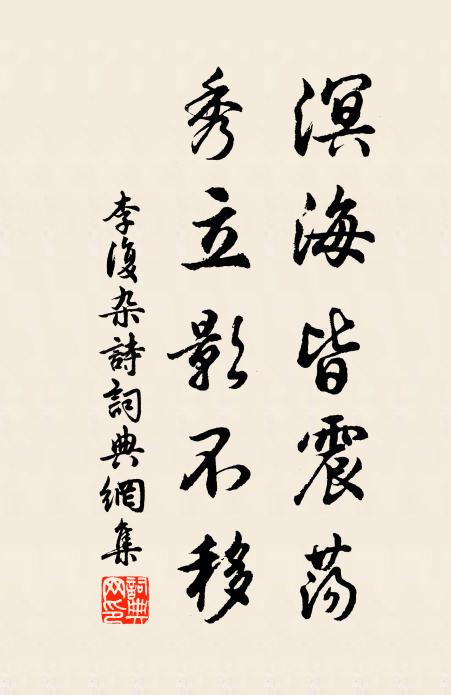 溟海皆震荡
秀立影不移
李復杂詩詞典網集
詞典网印